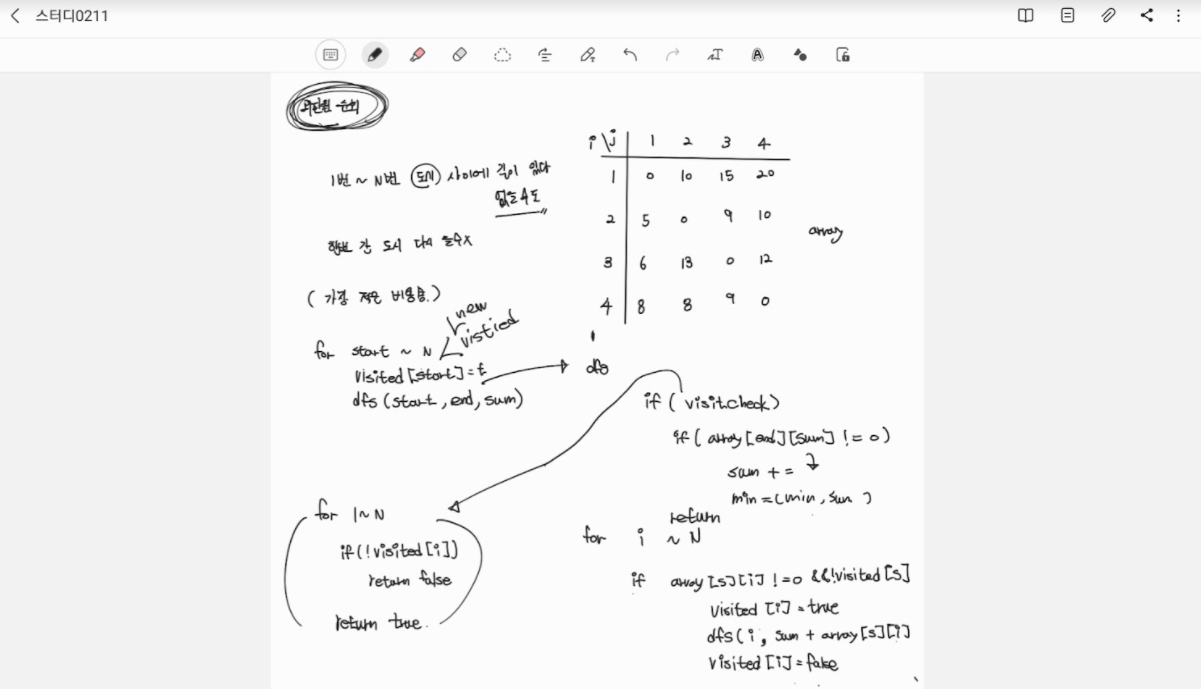 스터디0211
외판원 순회
1번 ~ N번 도시 사이에 길이 있다
없을수도
한번 간 도시 다시 올수X
(가장 적은 비용을.)
new
visited
for start ~ N
visited[start]=t
dfs (start, end, sum)
i\j 1 2 3 4
1 0 10 15 20
2 5 0 9 10
3 6 13 0 12
4 8 8 9 0
array
dfs
if ( visit.check)
if ( array[end][sum] != 0)
sum +=
min = (min, sum )
return
for i ~ N
if array [s][i] !=0 &&!visited[s]
visited [i] =true
dfs(i, sum + array[s][i]
visited[i]=false
for 1~N
if(!visited[i])
return false
return true.